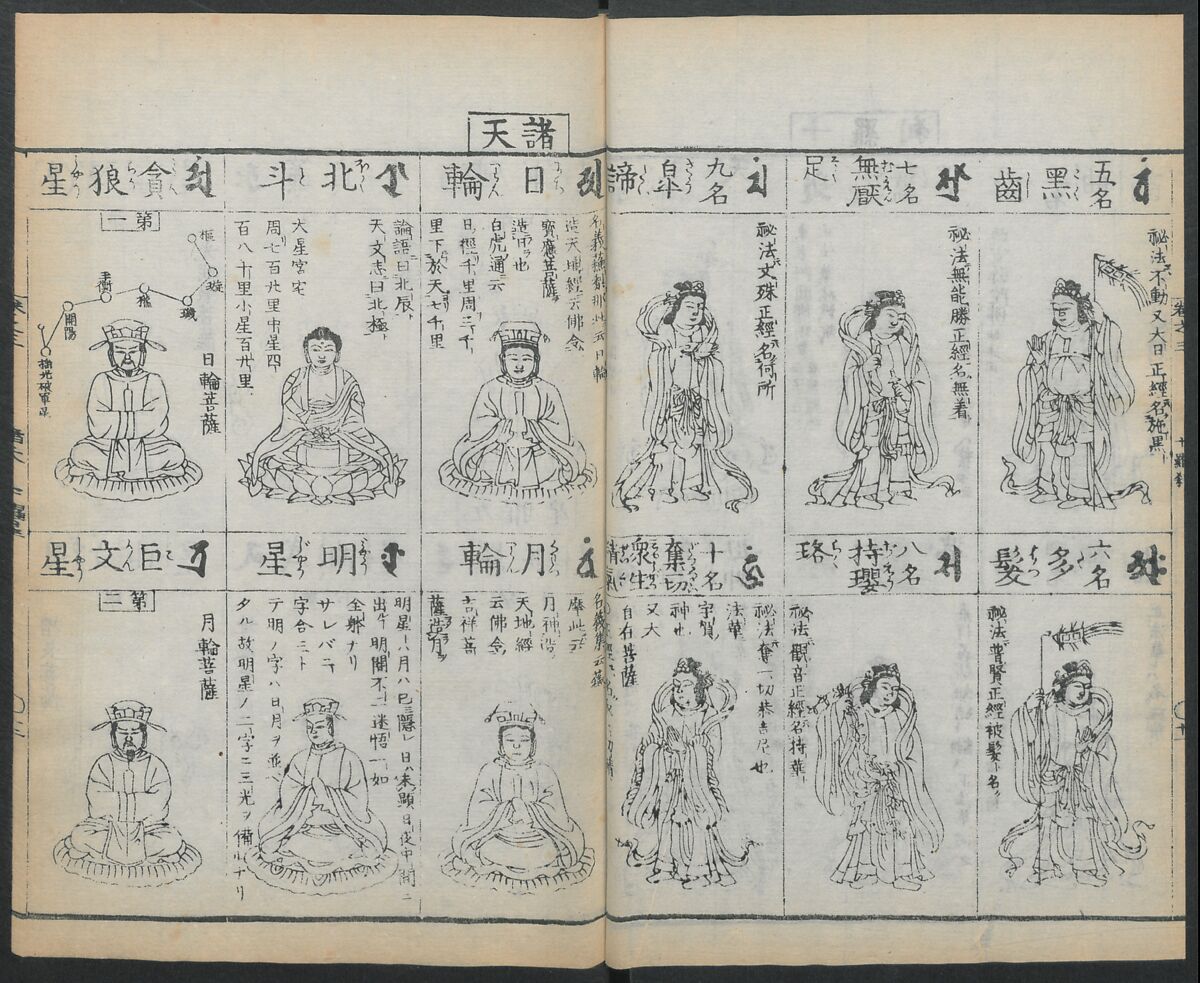 五名
黑齒
祕法不動又大日正經名施黑
六名
多髮
祕法普賢正經被髮名
七名
無厭
足
祕法無能勝正經名無着
八名
持瓔
珞
祕法觀音正經名持華
九名
皐諦
祕法文殊正經名何所
十名
奪一切
衆生
精氣
法華
字賀
神也
又大
自在菩薩
祕法奪一切恭吉尼也
諸天
日輪
造天地經云佛令
寶應菩薩
造日也
白虎通云
日徑千里周三千
里下於天七千里
月輪
月神造
天地經
云佛令
吉祥菩
薩造月
北斗
論語曰北辰
天文志曰北極
大星宮宅
周七百廿里中星四
百八十里小星百廿里
明星
明星ハ月ハ已ニ隱レ日ハ未顯日夜中間ニ
出ツ明闇不二迷悟一如
全躰ナリ
サレバニヤ
字合ニト
テ明ノ字ハ日月ヲ並ベ
タル故明星ノ二字ニ三光ヲ備ルナリ
貪狼星
第一
樞
璇
璣
權
玉衡
開陽
搖光破軍星
日輪菩薩
巨文星
第二
月輪菩薩